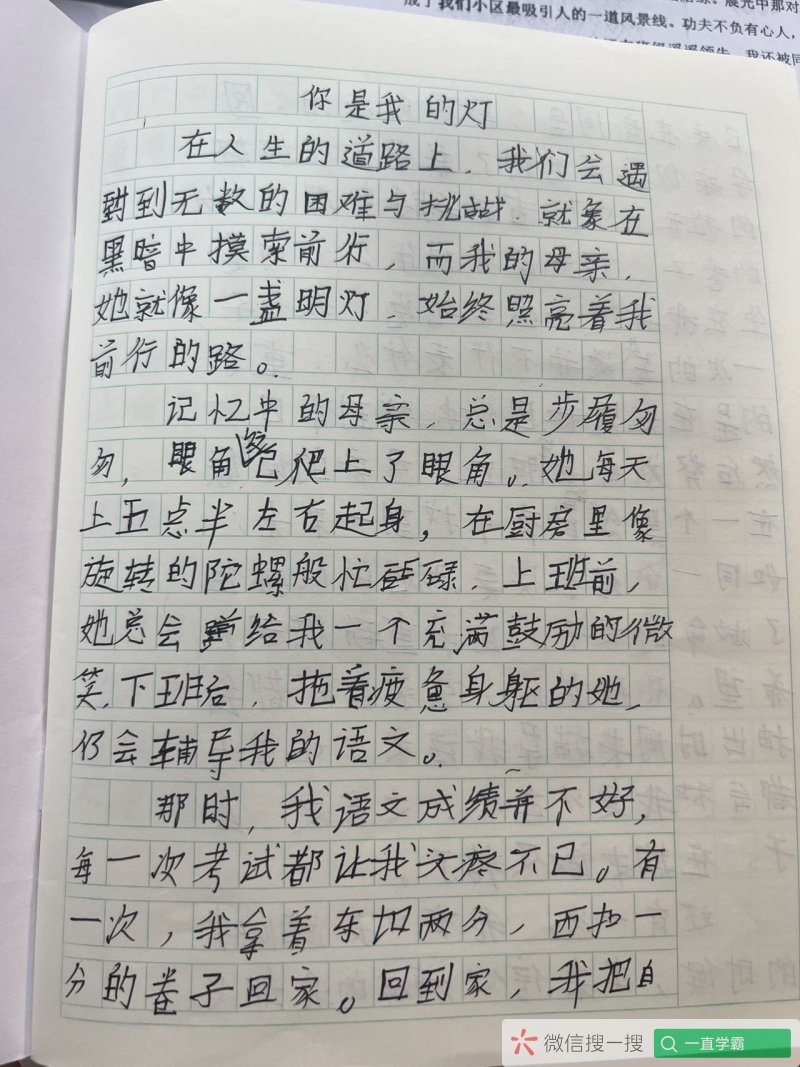 成了我们小区最吸引人的一道风景线。功夫不负有心人，
遥遥领先，我还被同
你是我的灯
在人生的道路上，我们会遇
到无数的困难与挑战，就象在
黑暗中摸索前行，而我的母亲，
她就像一盏明灯，始终照亮着我
前行的路。
记忆中的母亲，总是步履匆
匆，眼角已爬上了眼角。她每天
上五点半左右起身，在厨房里像
旋转的陀螺般忙碌，上班前，
她总会给我一个充满鼓励的微
笑，下班后，拖着疲惫身躯的她，
仍会辅导我的语文。
那时，我语文成绩并不好，
每一次考试都让我头疼不已。有
一次，我拿着东扣两分，西扣一
分的卷子回家。回到家，我把自
微信搜一搜
一直学霸